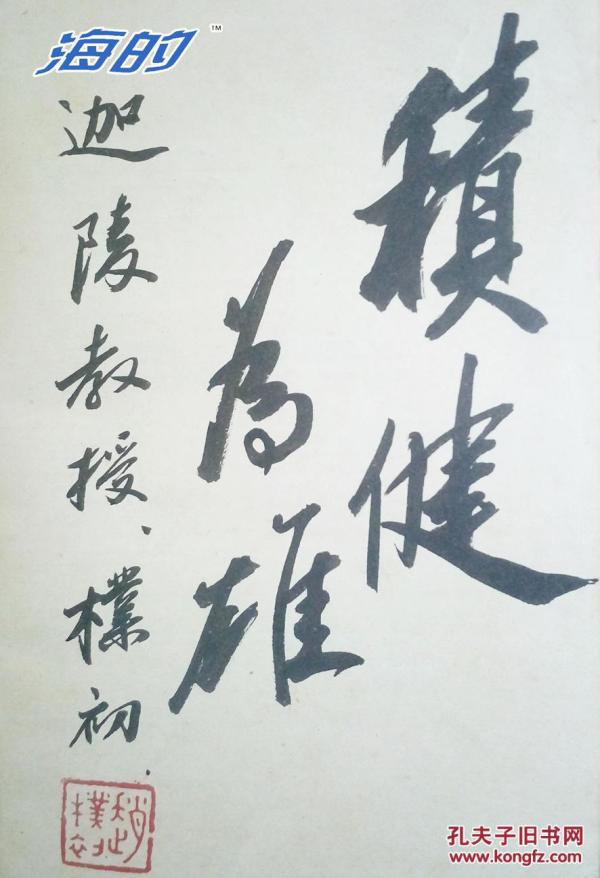 海的™
積健
為雄
迦陵教授、樸初.
趙樸初印
孔夫子旧书网
www.kongfz.com